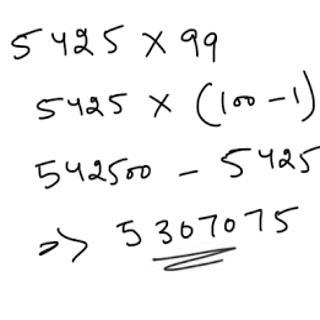 5425 × 99
5425 × (100 - 1)
542500 - 5425
=> 5307075